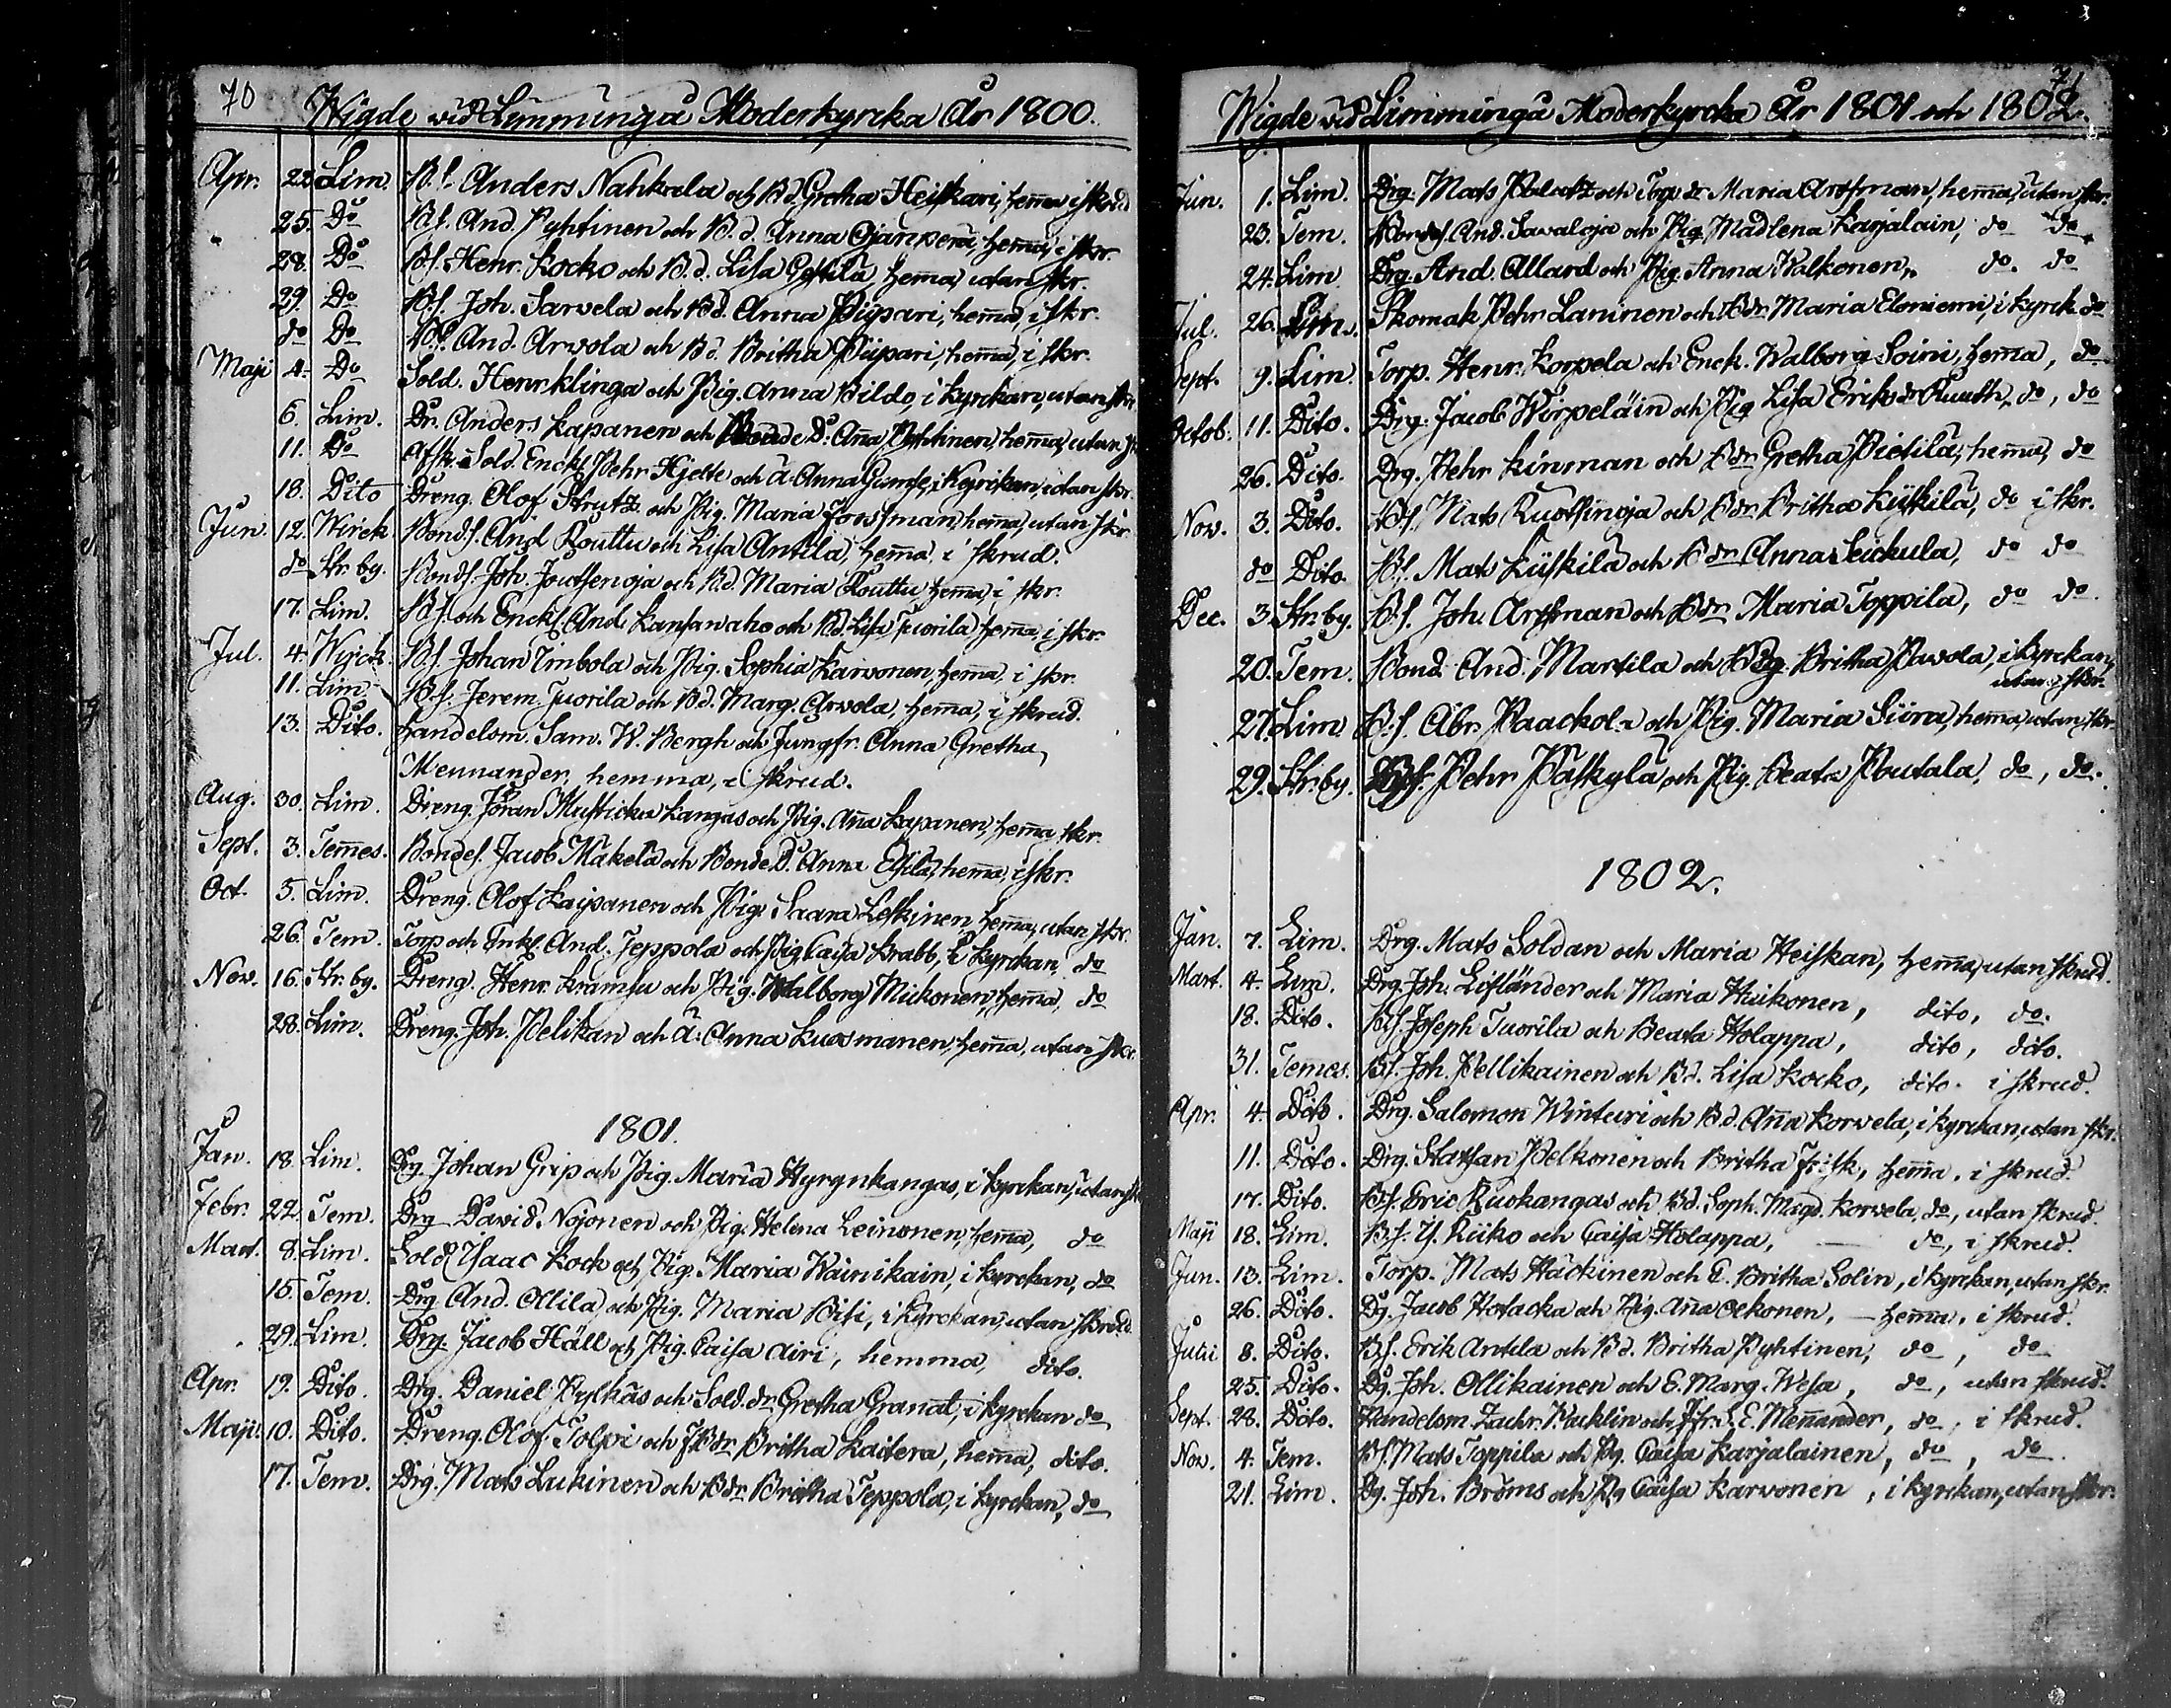 70 Wigde wid Limminga Moderkyrcka År 1800.
Apr. 22 Lim. B.f. Anders Nahkala och Bd. Gretha Heiskari, hema i skrud
25. Do Bf. And. Pyhtinen och B.d. Anna Ojanperä, hema, i skr.
28. Do Bf. Henr. Kocko och B.d. Lisa Gästilä, hema, utan skr.
29. Do Bf. Joh. Sarvela och Bd. Anna Piipari, hema, i skr.
do Do Bf. And. Arvola och Bd. Britha Piipari, hema, i skr.
Maji 4. Do Sold. Henr Klinga och Pig. Anna Bildo, i Kyrckan, utan skr.
6. Lim. Dr. Anders Kapanen och Bonde D. Aña Pyhtinen, hema, utan
11. Do Afsk. Sold. Enckl. Pehr Hjelte och Ä. Anna Gumse, i Kyrckan, utan skr.
18. Dito Dreng. Olof Strutz och Pig. Maria Forsman, hema, utan skr
Jun. 12. Wirck Bondf. And Routtu och Lisa Antila, hema i skrud.
do Str. by. Bondf. Joh. Joutsenoja och Bd. Maria Routtu, hema, i skr.
17. Lim. Bf. och Enckl. And. Kansanaho och Bd. Lisa Tuorila hema i skr.
Jul. 4. Wirck. Bf. Johan Timbola och Pig. Sophia Karvonen, hema. i skr.
11. Lim. Bf. Jerem. Tuorila och Bd. Marg. Arvola, hema, i skrud.
13. Dito. Handelsm. Sam. W. Bergh och Jungfr. Anna Gretha
Mennander, hemma, i skrud.
Aug. 30. Lim. Dreng. Jöran Mustickakangas och Pig. Aña Kapanen, hema skr.
Sept. 3. Temes. Bondef. Jacob Mäkelä och Bonde D. Anna Elsilä, hema, i skr.
Oct. 5. Lim. Dreng. Olof Kaipanen och Pig. Saara Leskinen, hema, utan skr.
26. Tem. Torp och Enkl. And. Teppola och Pig. Caisa Krabb, i Kyrckan, do
Nov. 16. Str. by. Dreng. Henr. Kramsu och Pig. Walborg Mickonen, hema, do
28. Lim. Dreng. Joh. Pelikan och Ä. Anna Kuosmanen, hema, utan skr.
1801.
Jan. 18. Lim. Drg. Johan Grip och Pig. Maria Hyrynkangas, i Kyrckan, utan sk
Febr. 22. Tem. Drg David. Nojonen och Pig. Helena Leinonen, hema, do
Mart. 8. Lim. Sold. Isaac Kock och Pig. Maria Wainikain, i kyrckan, do
15. Tem. Drg. And. Ollila och Pig. Maria Bisi, i Kyrckan, utan skrud.
29. Lim. Drg. Jacob Häll och Pig. Caisa Airi, hemma, dito.
Apr. 19. Dito. Drg. Daniel Pylkäs och Sold. dr. Gretha Granat, i kyrckan do
Maji. 10. Dito. Dreng. Olof Tolpi och Bdr. Britha Kaitera, hema, dito.
17. Tem. Drg. Mats Lukinen och Bdr. Britha Teppola, i kyrckan, do
71
Wigde wid Limminga Moderkyrcka År 1801 och 1802.
Jun. 1. Lim. Drg. Mats Palatz och Torp. dr. Maria Arffman, hema, utan skr.
23. Tem. Bondef. And. Savaloja och Pig. Madlena Karjalain, do do
24. Lim. Drg. And. Allard och Pig. Anna Walkonen, do. do
Jul. 26. Lim. Skomak. Pehr Laninen och Bdr. Maria Eloniemi, i kyrck. do
Sept. 9. Lim. Torp. Henr. Korpela och Enck. Walborg Soini, hema, do
Octob. 11. Dito. Drg. Jacob Wirpeläin och Pig Lisa Eriks dr Ruuth, do, do
26. Dito. Drg. Pehr Kinman och Bdr. Gretha Pietilä, hema, do
Nov. 3. Dito. Bf. Mats Ruotsinoja och Bdr. Britha Kiiskilä, do i skr.
do Dito. Bf. Mats Kiiskilä och Bdr. Anna Leickula, do do
Dec. 3. Str. by. Bf. Joh. Arffman och Bdr. Maria Toppila, do do.
20. Tem. Bond. And. Martila och Pig. Britha Pavola, i kyrckan,
utan skr.
27. Lim. B.f. Abr. Paackola och Pig. Maria Siira, hema, utan skr
29. Str. by. Bf. Pehr Päskylä och Pig. Beata Poutala, do, do.
1802.
Jan. 7. Lim. Drg. Mats Soldan och Maria Heiskan, hema, utan skrud.
Mart. 4. Lim. Drg. Joh. Lifländer och Maria Huikonen, dito, do.
18. Dito. Bf. Joseph Tuorila och Beata Holappa, dito, dito.
31. Temes. Bf. Joh. Pellikainen och Bd. Lisa Kocko, dito. i skrud.
Apr. 4. Dito. Drg. Salomon Winturi och Bd. Aña Korvela, i kyrckan, utan skr.
11. Dito. Drg. Staffan Pelkonen och Britha Frisk, hema. i skrud.
17. Dito. Bf. Eric Ruokangas och Bd. Soph. Magd. Korvela, do, utan skrud.
Maji 18. Lim. Bf. Y. Riiko och Caisa Holappa, — do, i skrud.
Jun. 13. Lim. Torp. Mats Häckinen och E. Britha Solin, i kyrckan, utan skr.
26. Dito. Dg. Jacob Hotacka och Pig. Aña Ockonen, — hema, i skrud.
Julii 8. Dito. Bf. Erik Antila och Bd. Britha Pyhtinen, do, do
25. Dito. Dg. Joh. Ollikainen och E. Marg. Wesa, do, utan skrud.
Sept. 28. Dito. Handelsm. Zachr. Wacklin och Jfr. S. E. Mennander, do, i skrud.
Nov. 4. Tem. Bf. Mats Toppila och Pg. Caisa Karjalainen, do, do.
21. Lim. Dg. Joh. Broms och Pg Caisa Karvonen, i kyrckan, utan skr.